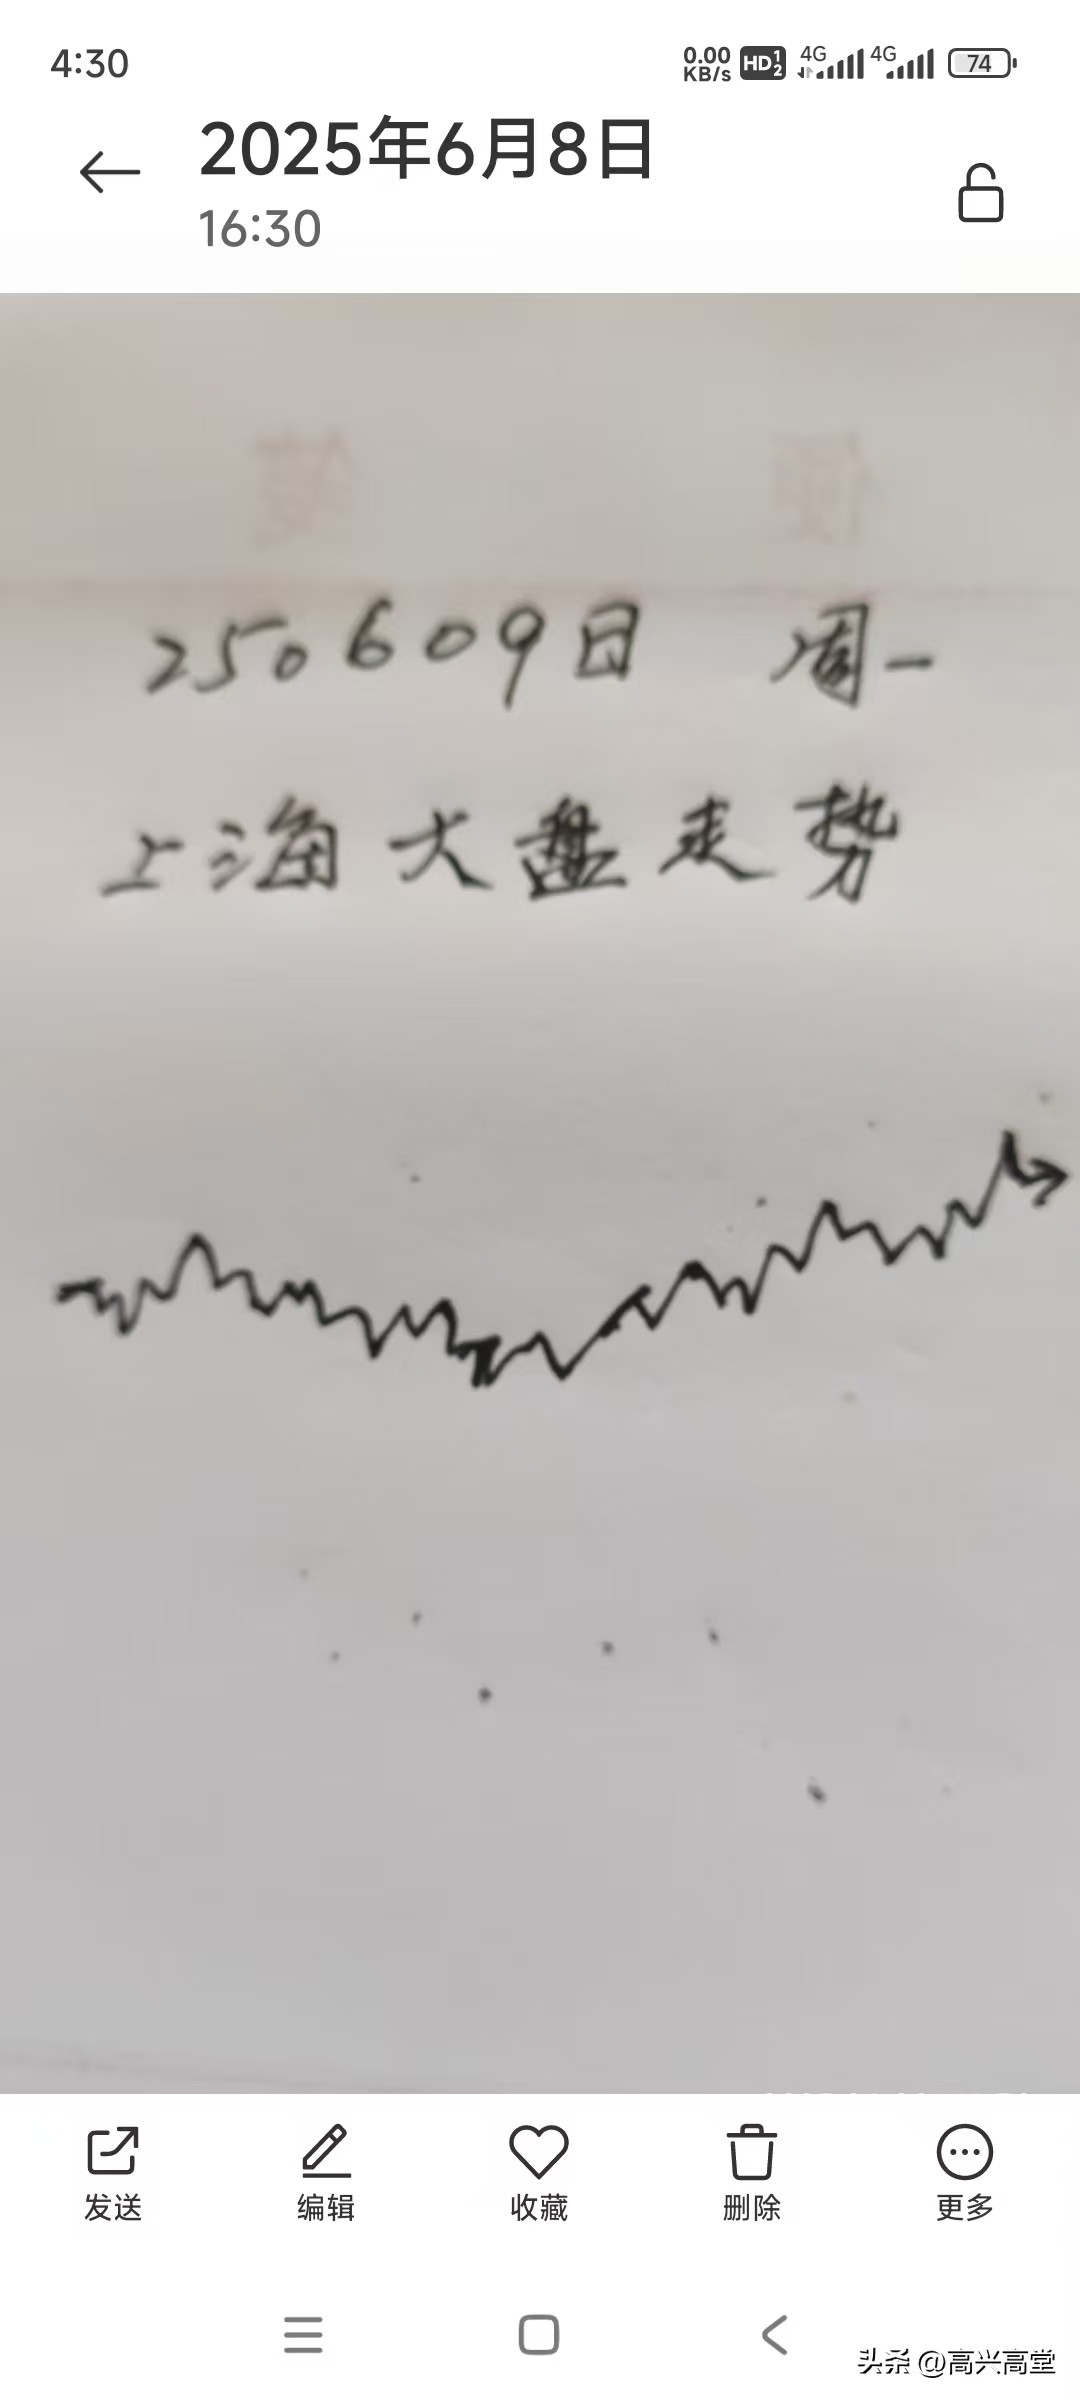 4:30
0.00 KB/s HD 1 2 4G 4G 74
2025年6月8日
16:30
笺 便
250609日 周一
上海大盘走势
发送 编辑 收藏 删除 更多
头条 @高兴高堂